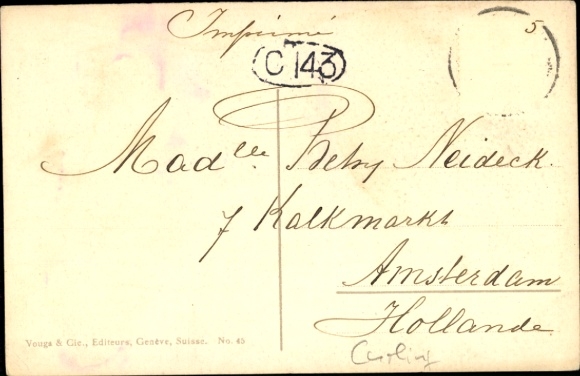 Imprimé
5
C 143
Madlle. Betsy Neideck.
7 Kalkmarkt
Amsterdam
Hollande
Vouga & Cie., Editeurs, Genève, Suisse. No. 45
Curling